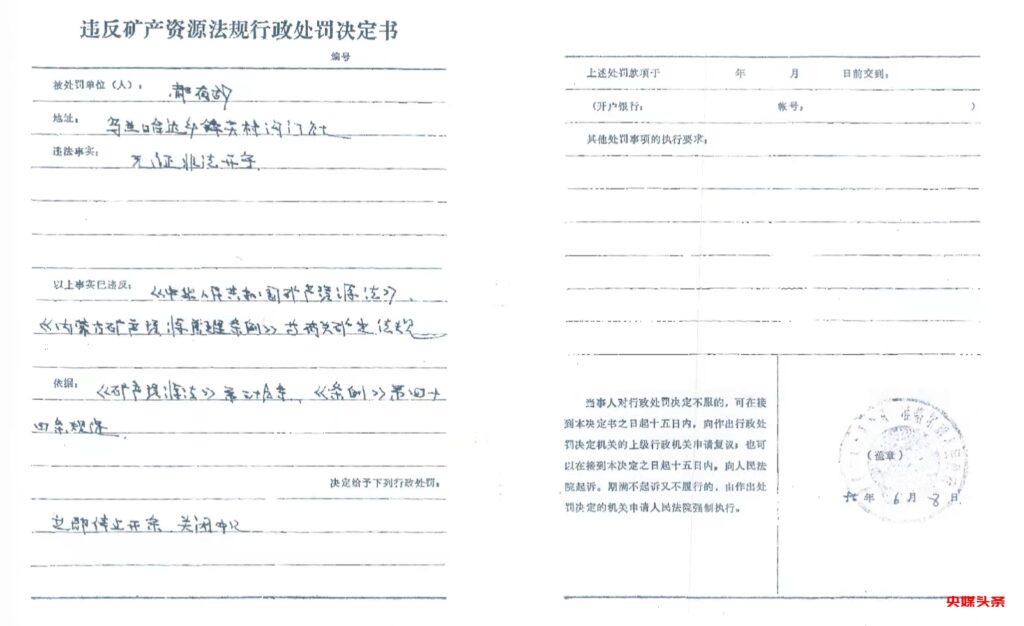 违反矿产资源法规行政处罚决定书
编号
被处罚单位（人）：
地址： 乌兰哈达乡 村河门社
违法事实： 无证非法开字
以上事实已违反：《中华人民共和国矿产资源法》、
《内蒙古矿产资源管理条例》等有关矿产法规
依据： 《矿产资源法》第三十 条、《条例》第四十
四条规保
决定给予下列行政处罚：
立即停止开采 关闭井口
上述处罚款项于 年 月 日前交到：
（开户银行： 帐号： ）
其他处罚事项的执行要求：
当事人对行政处罚决定不服的，可在接
到本决定书之日起十五日内，向作出行政处
罚决定机关的上级行政机关申请复议；也可
以在接到本决定之日起十五日内，向人民法
院起诉。期满不起诉又不履行的，由作出处
罚决定的机关申请人民法院强制执行。
（盖章）
年 6 月 8 日
央媒头条